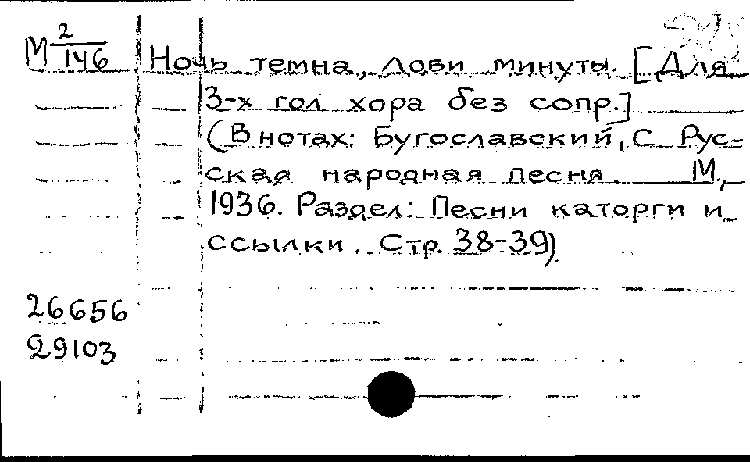 М 2/146 Ночь темна, лови минуты. [Для
3-х гол хора без сопр.]
(В нотах: Бугославский, С. Рус-
ская народная песня. М.,
1936. Раздел: Песни каторги и
ссылки. Стр. 38-39).
26656
29103